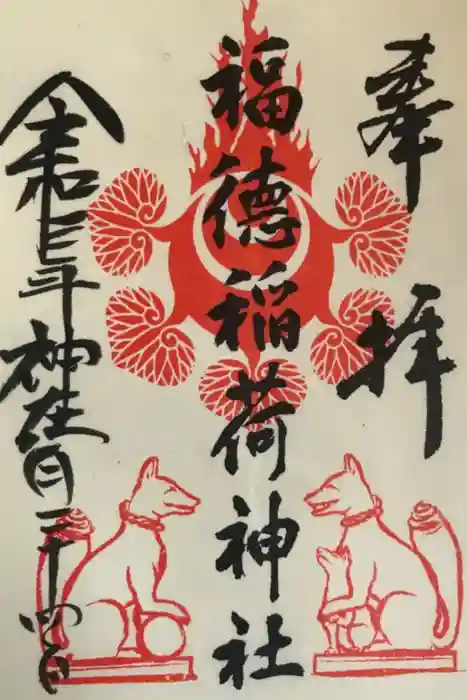 奉拝
福徳稲荷神社
令和年神在月二十四日